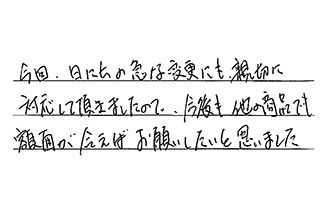 今回、日にちの急な変更にも親切に
対応して頂きましたので、今後も他の商品でも
額面が合えばお願いしたいと思いました